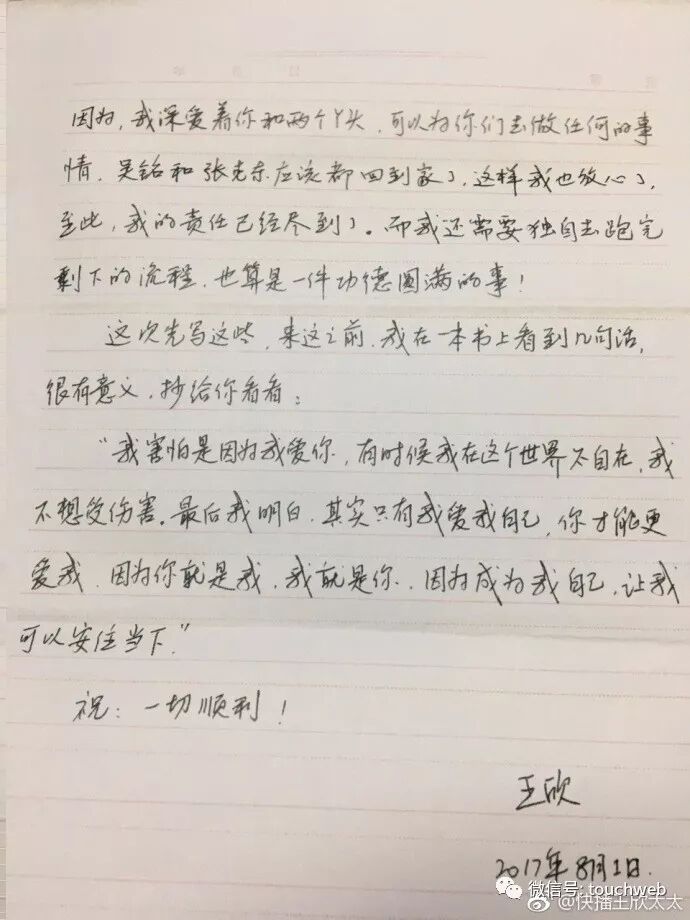 因为,我深爱着你和两个丫头,可以为你们去做任何的事
情,吴铭和张克东应该都回到家了,这样我也放心了,
至此,我的责任已经尽到了。而我还需要独自去跑完
剩下的流程,也算是一件功德圆满的事!
这次先写这些,来这之前,我在一本书上看到几句话,
很有意义,抄给你看看:
“我害怕是因为我爱你,有时候我在这个世界不自在,我
不想受伤害。最后我明白,其实只有我爱我自己,你才能更
爱我,因为你就是我,我就是你,因为成为我自己,让我
可以安住当下。”
祝:一切顺利!
王欣
2017年8月1日.
微信号: touchweb
@快播王欣太太